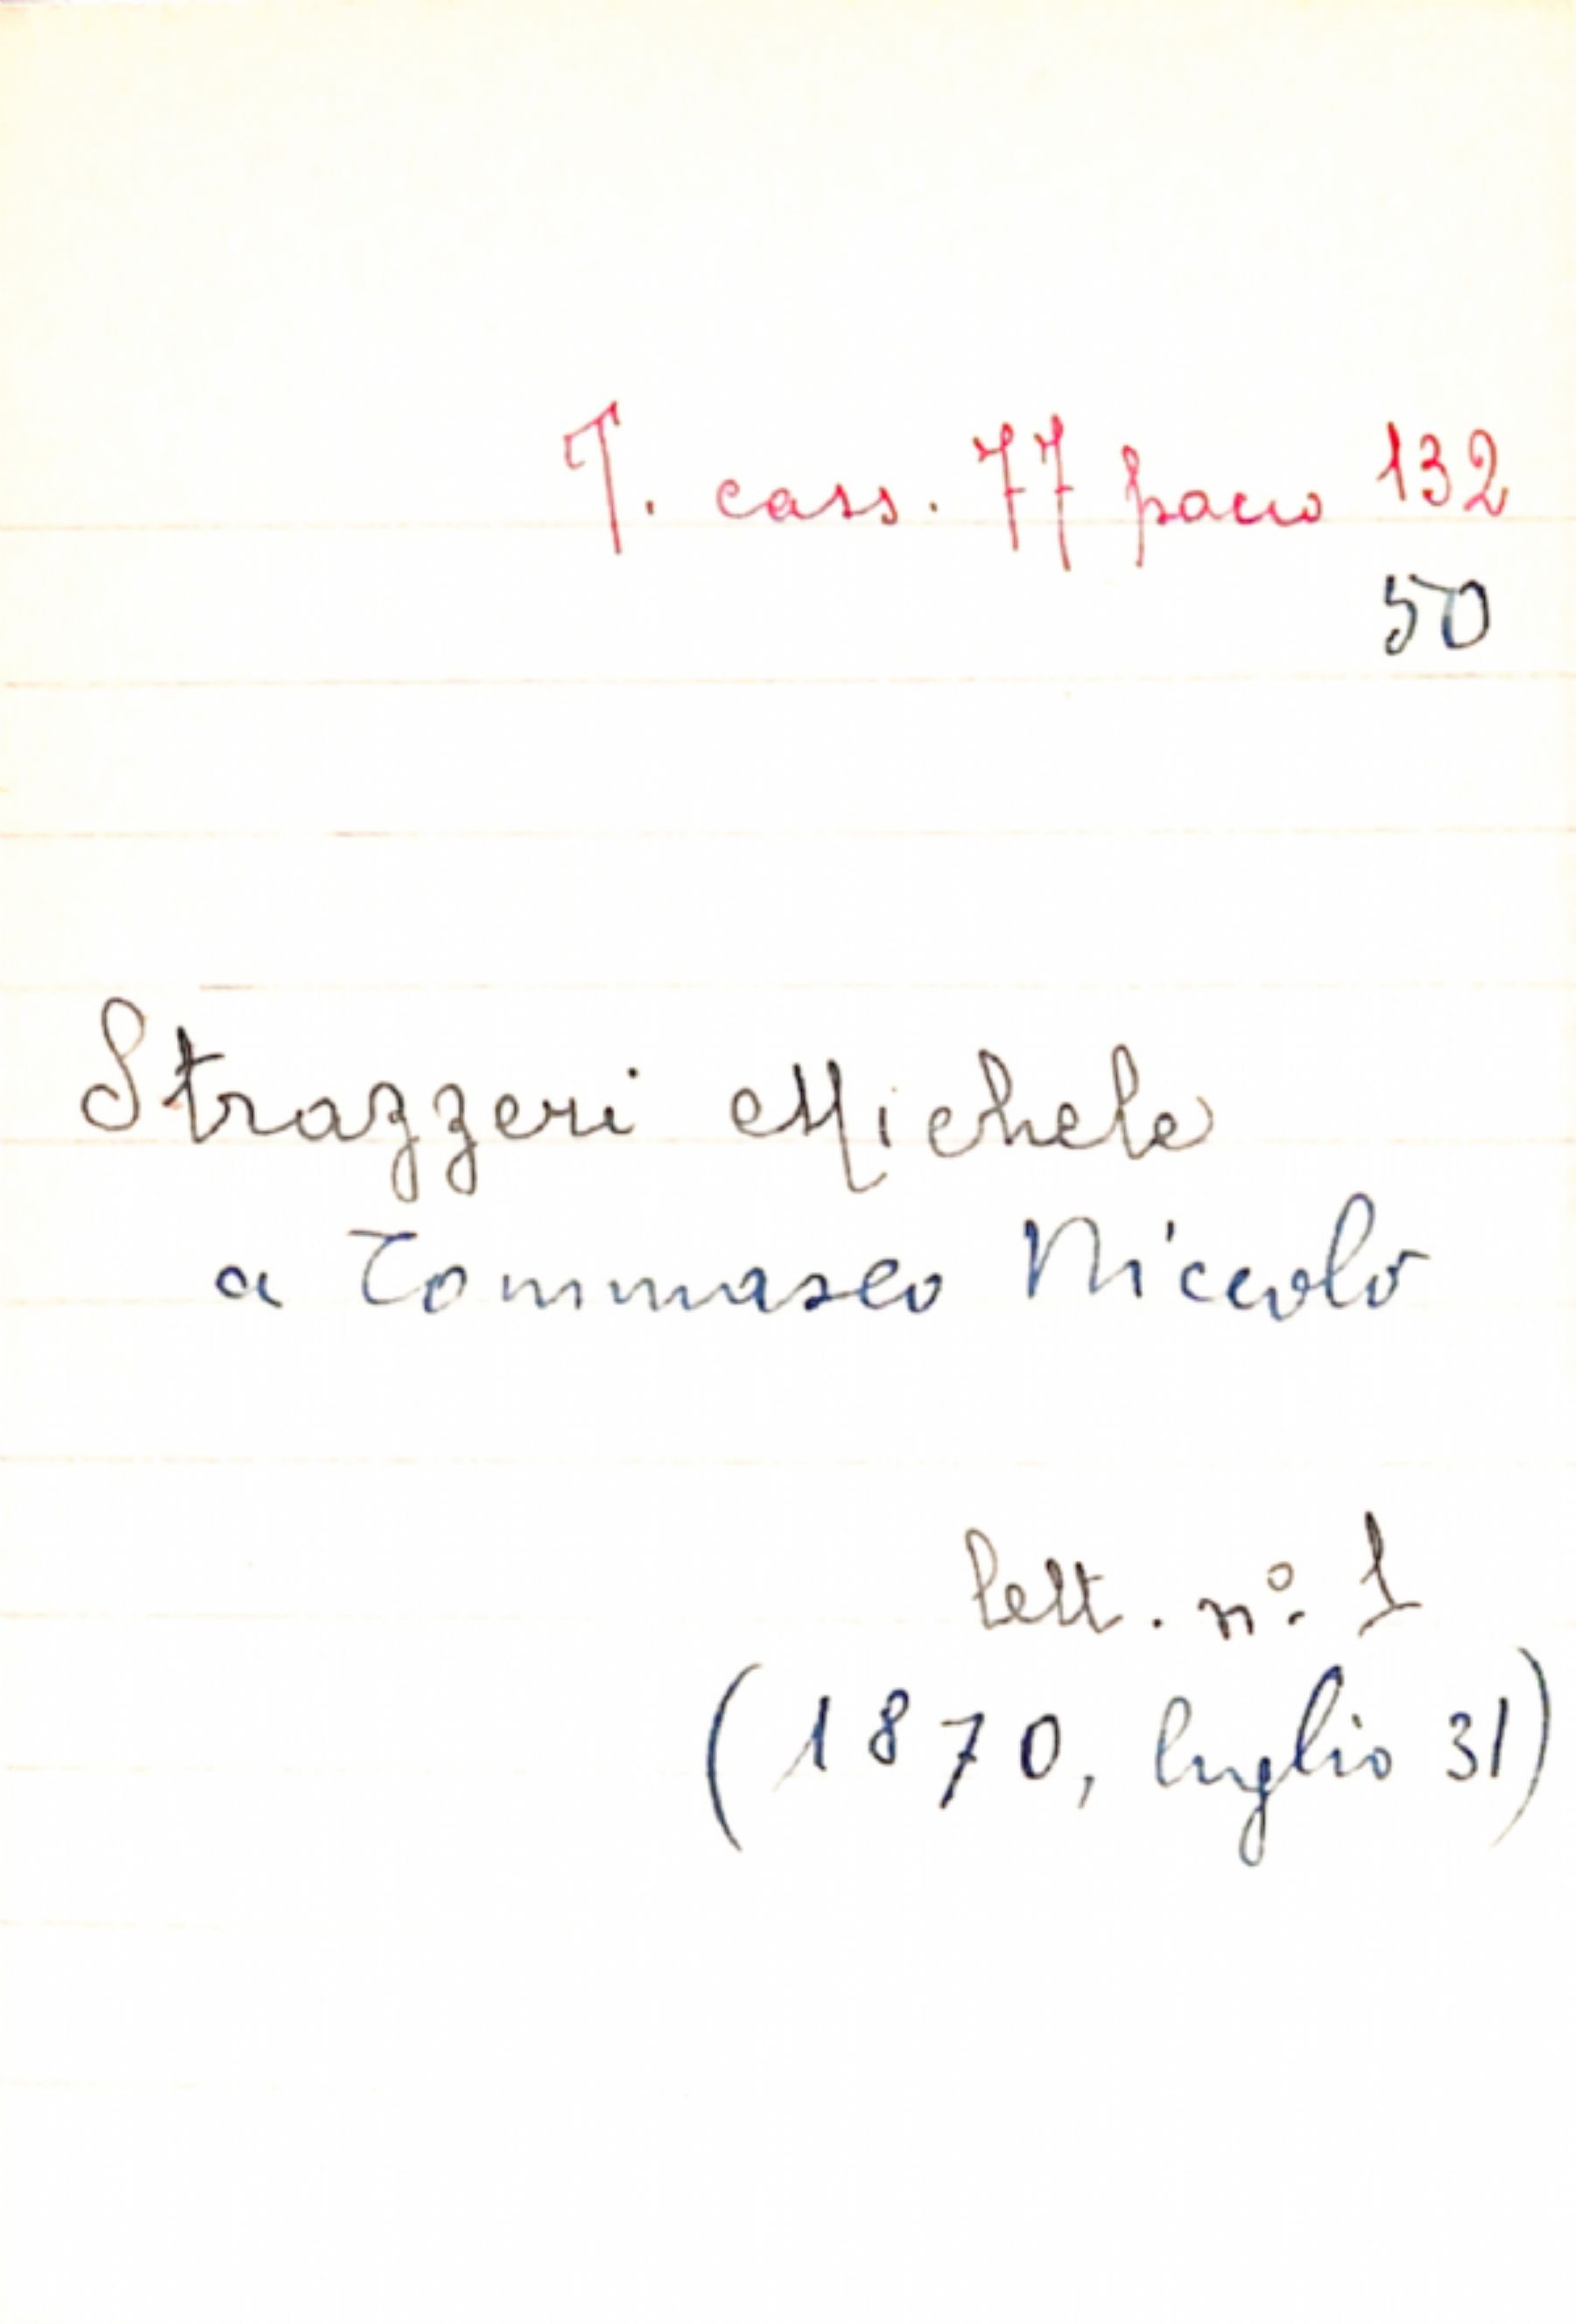 T. cass. 77 pacco 132
50
Strazzeri Michele
a Tommaseo Niccolò
lett. nº 1
(1870, luglio 31)